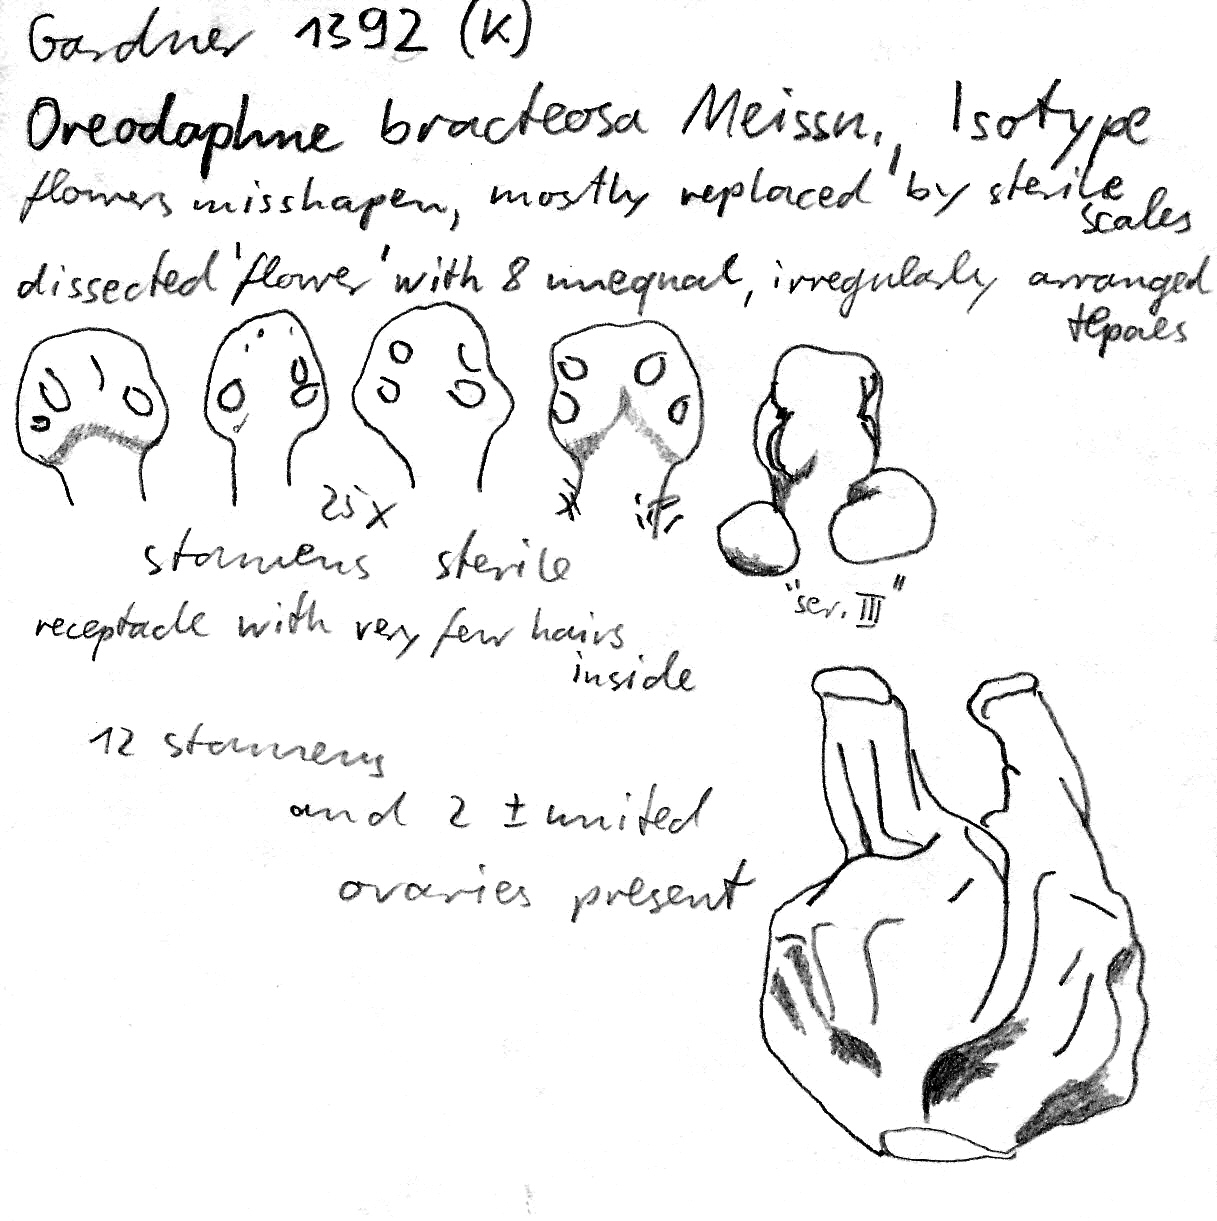 Gardner 1392 (K)
Oreodaphne bracteosa Meissn., Isotype
flowers misshapen, mostly replaced by sterile
scales
dissected 'flower' with 8 unequal, irregularly arranged
tepals
25x
stamens sterile
"ser. III"
receptacle with very few hairs
inside
12 stamens
and 2 ± united
ovaries present